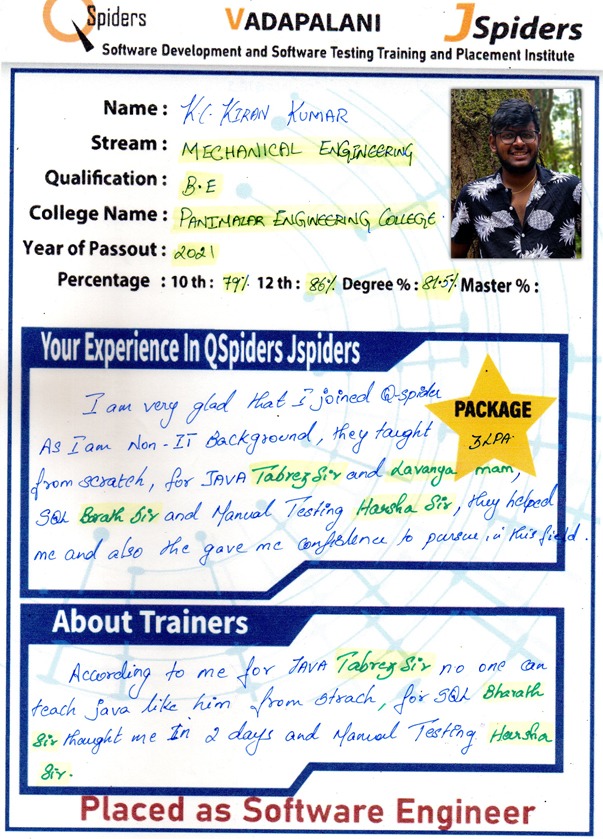 QSpiders VADAPALANI JSpiders
Software Development and Software Testing Training and Placement Institute
Name : K.C. KIRAN KUMAR
Stream : MECHANICAL ENGINEERING
Qualification : B.E
College Name : PANIMALAR ENGINEERING COLLEGE.
Year of Passout : 2021
Percentage : 10 th : 79% 12 th : 86% Degree % : 81.5% Master % :
Your Experience In QSpiders Jspiders
I am very glad that I joined Q-spider
As I am Non-IT Background, they taught
from scratch, for JAVA Tabrez Sir and Lavanya mam,
SQL Barath Sir and Manual Testing Harsha Sir, they helped
me and also the gave me confidence to pursue in this field.
PACKAGE
3LPA
About Trainers
According to me for JAVA Tabrez Sir no one can
teach java like him from strach, for SQL Bharath
Sir thought me In 2 days and Manual Testing Harsha
Sir.
Placed as Software Engineer